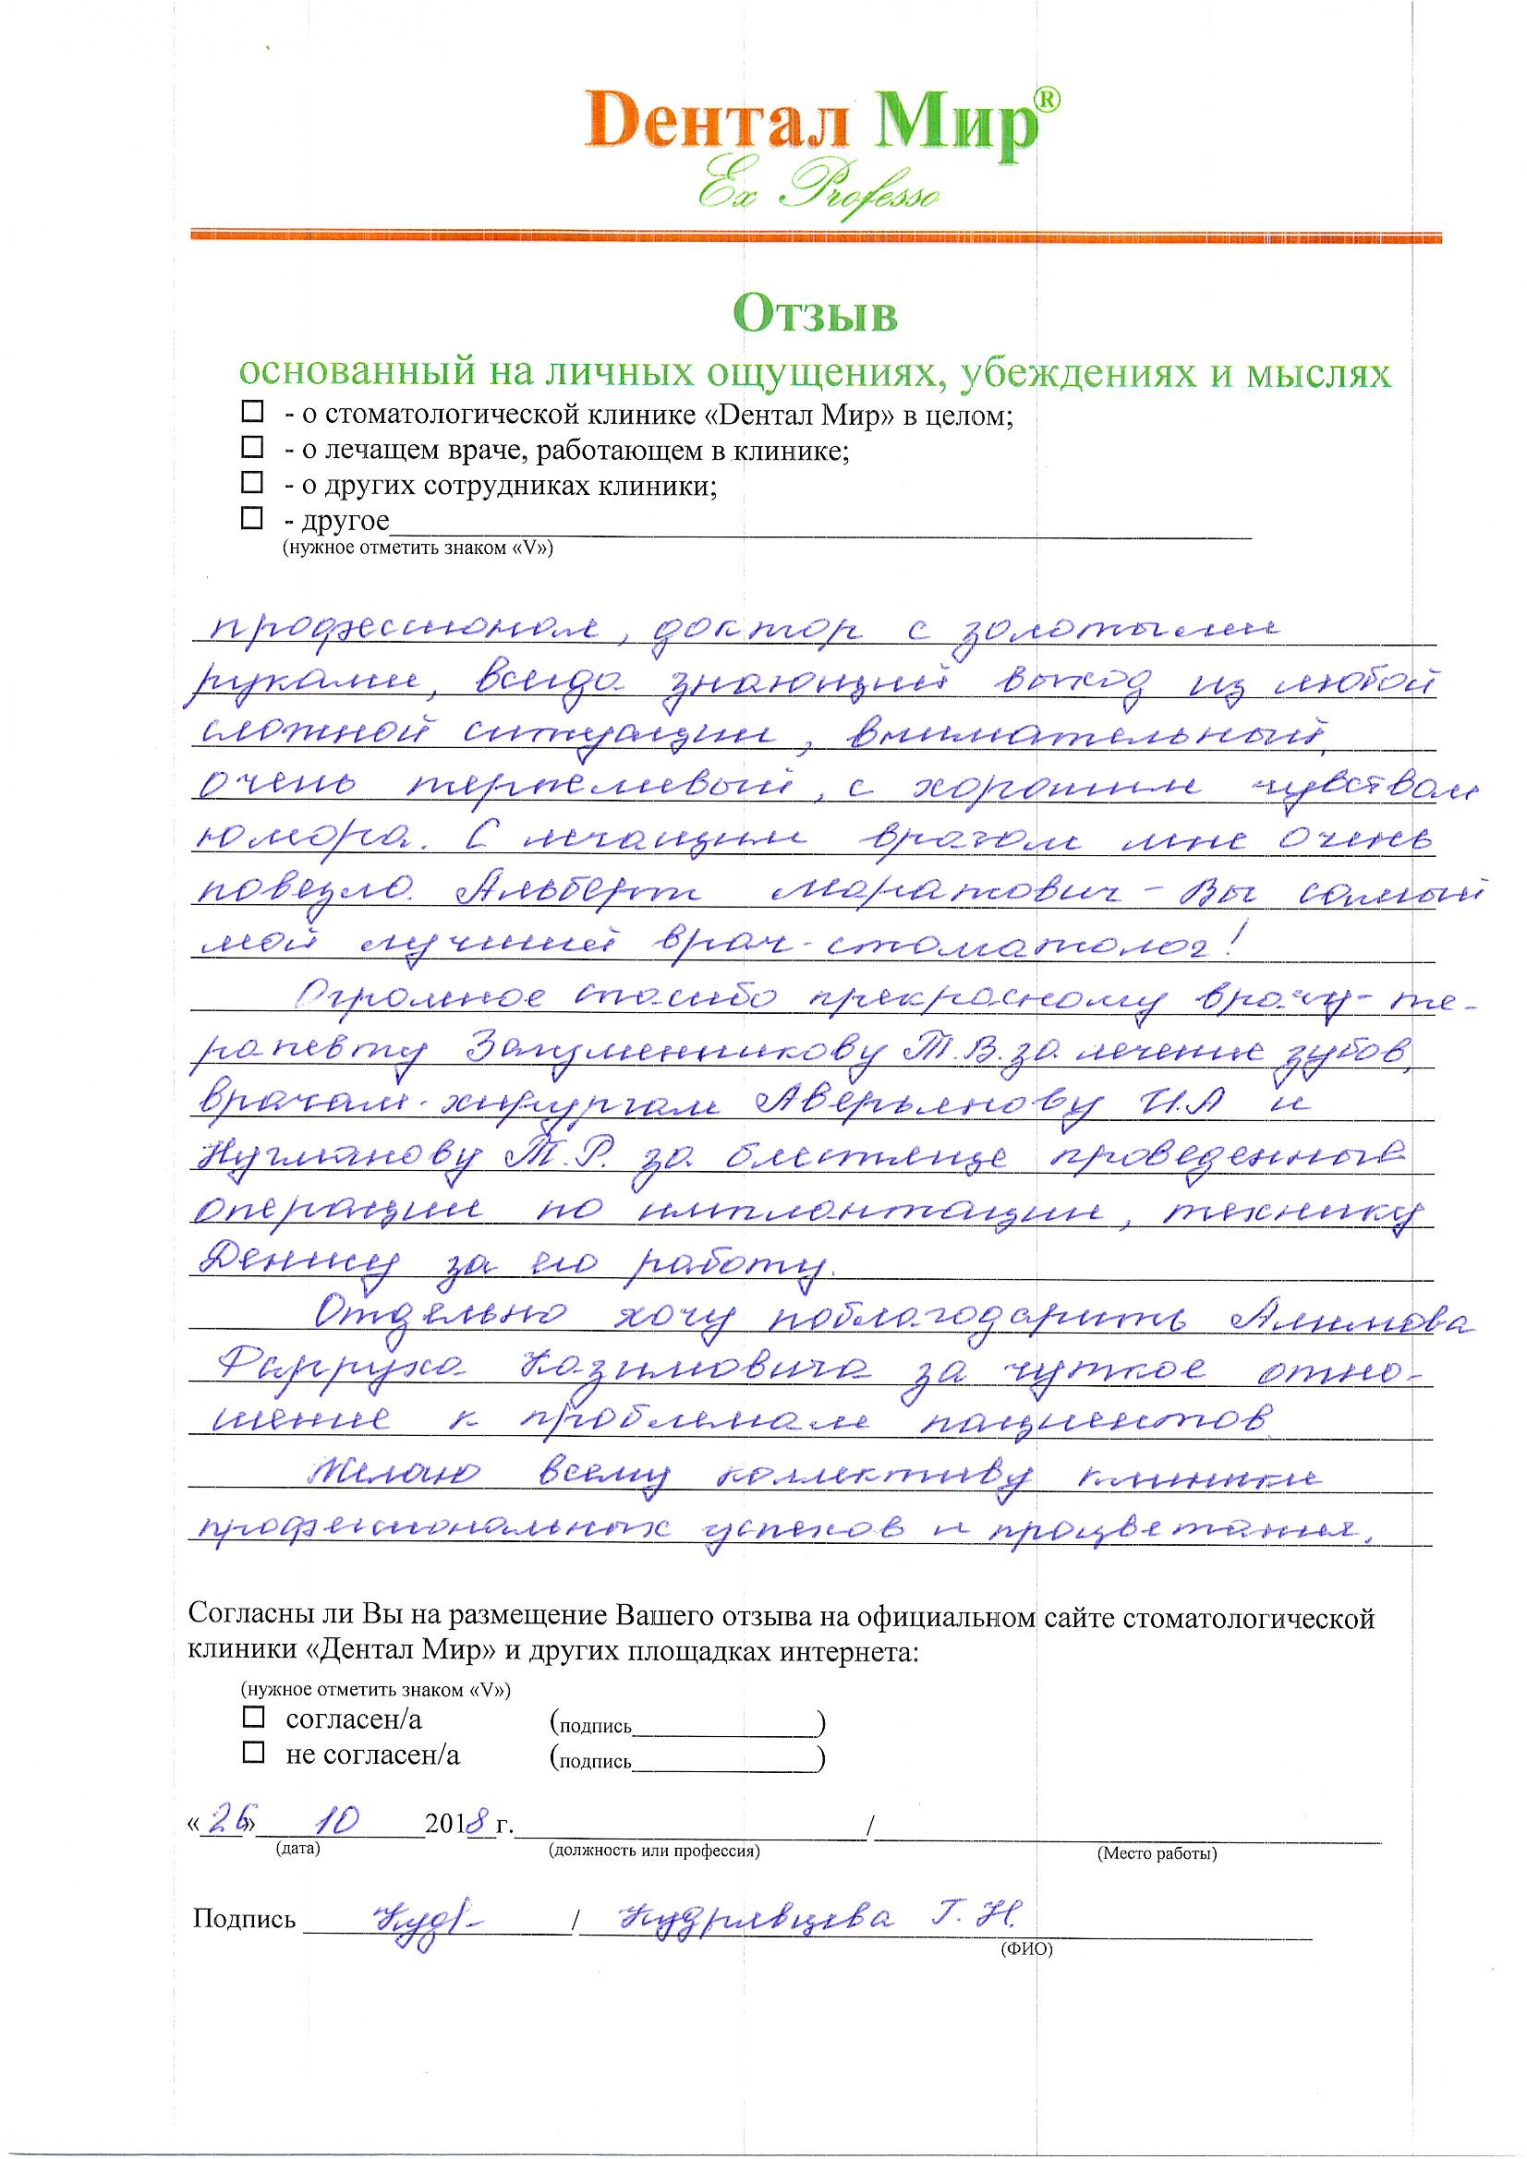 Dентал Мир®
Ex Professo
Отзыв
основанный на личных ощущениях, убеждениях и мыслях
- о стоматологической клинике «Dентал Мир» в целом;
- о лечащем враче, работающем в клинике;
- о других сотрудниках клиники;
- другое
(нужное отметить знаком «V»)
профессионал, доктор с золотыми
руками, всегда знающий выход из любой
сложной ситуации, внимательный,
очень терпеливый, с хорошим чувством
юмора. С лечащим врачом мне очень
повезло. Альберт Маратович – Вы самый
мой лучший врач-стоматолог!
Огромное спасибо прекрасному врачу-те-
рапевту Загуменникову Т.В. за лечение зубов,
врачам-хирургам Аверьянову И.А и
Нугманову Т.Р. за блестяще проведенные
операции по имплантации, технику
Денису за его работу.
Отдельно хочу поблагодарить Алимова
Фарруха Казимовича за чуткое отно-
шение к проблемам пациентов
Желаю всему коллективу клиники
профессиональных успехов и процветания.
Согласны ли Вы на размещение Вашего отзыва на официальном сайте стоматологической
клиники «Дентал Мир» и других площадках интернета:
(нужное отметить знаком «V»)
согласен/а (подпись )
не согласен/а (подпись )
«26» 10 2018 г. /
(дата) (должность или профессия) (Место работы)
Подпись Кудр- / Кудрявцева Г. Н.
(ФИО)